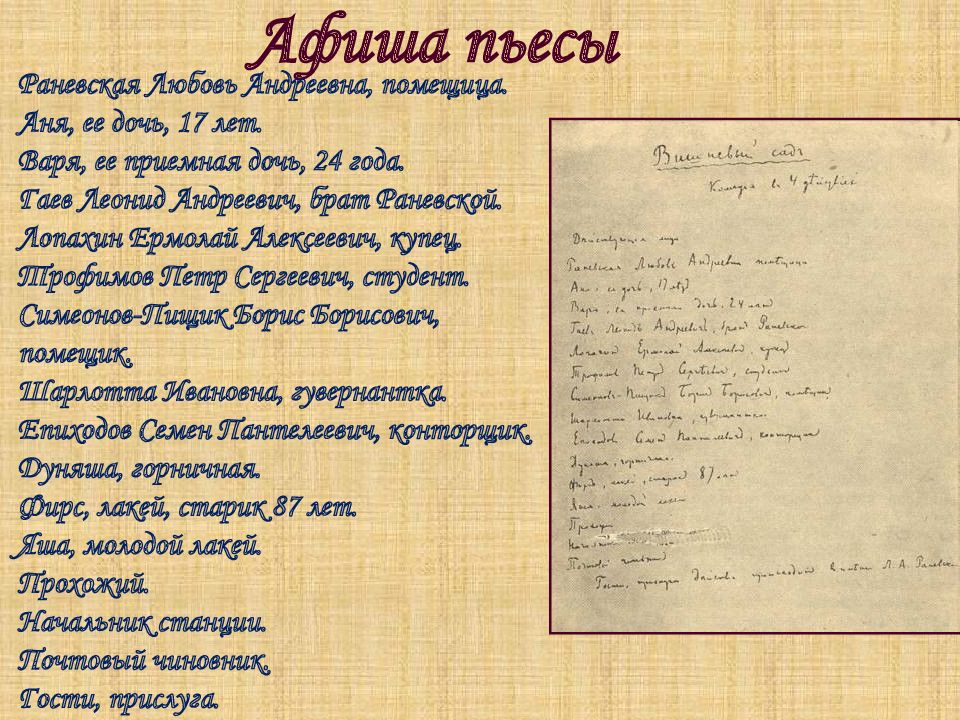 Афиша пьесы
Раневская Любовь Андреевна, помещица.
Аня, ее дочь, 17 лет.
Варя, ее приемная дочь, 24 года.
Гаев Леонид Андреевич, брат Раневской.
Лопахин Ермолай Алексеевич, купец.
Трофимов Петр Сергеевич, студент.
Симеонов-Пищик Борис Борисович,
помещик.
Шарлотта Ивановна, гувернантка.
Епиходов Семен Пантелеевич, конторщик.
Дуняша, горничная.
Фирс, лакей, старик 87 лет.
Яша, молодой лакей.
Прохожий.
Начальник станции.
Почтовый чиновник.
Гости, прислуга.
Вишневый садъ
Комедия въ 4 действіяхъ
Действующія лица
Раневская Любовь Андреевна помещица
Аня, ее дочь, 17 летъ
Варя, ея дочь, 24 летъ
Гаевъ Леонидъ Андреевичъ, братъ Раневской
Лопахинъ Ермолай Алексеевичъ, купец
Трофимовъ Петръ Сергеевичъ, студентъ
Симеоновъ-Пищикъ Борисъ Борисовичъ, помещикъ
Шарлотта Ивановна, гувернантка
Епиходовъ Семенъ Пантелеевичъ, конторщикъ
Дуняша, горничная.
Фирсъ, лакей, старикъ 87 летъ
Яша, молодой лакей
Прохожій
Почтовый чиновникъ
Гости,